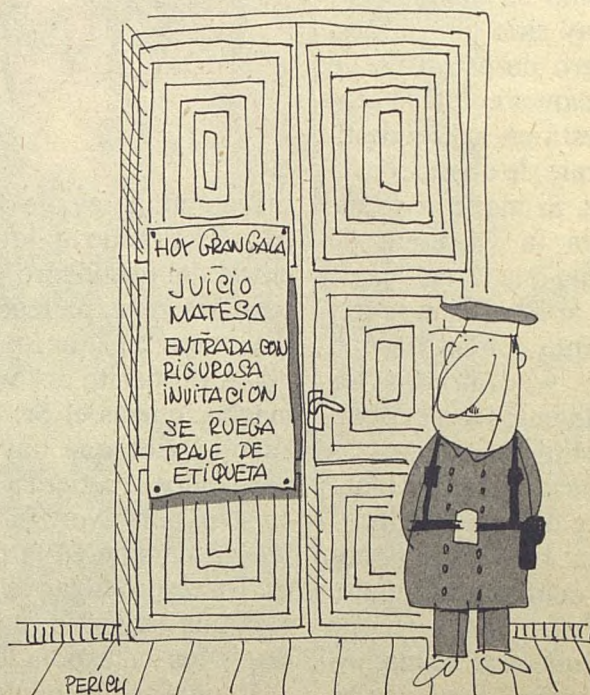 HOY GRAN GALA
—
JUICIO
MATESA
—
ENTRADA CON
RIGUROSA
INVITACION
—
SE RUEGA
TRAJE DE
ETIQUETA
PERICH